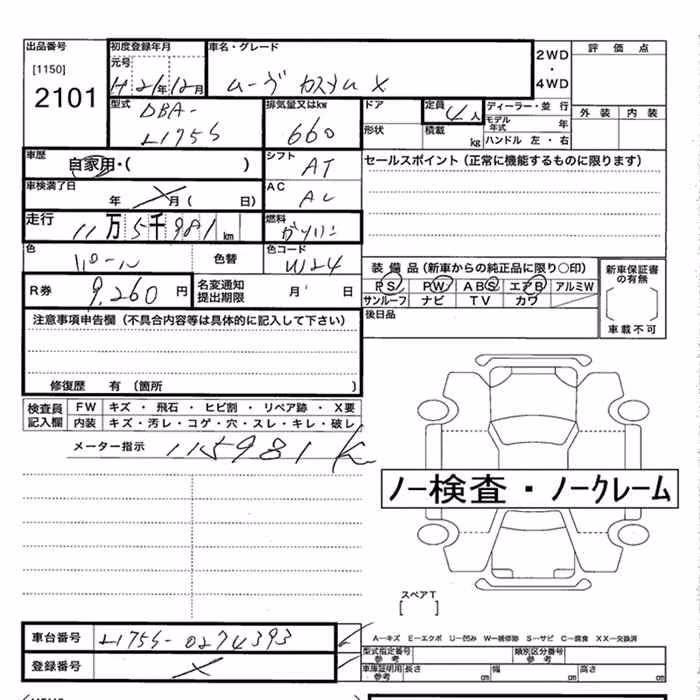 出品番号 初度登録年月 車名・グレード 2WD ・ 4WD 評価点
[1150] 元号
2101 H 21年12月 ムーヴ カスタム X
型式 排気量又はkw ドア 定員 4人 ディーラー・並行 外装 内装
DBA- モデル年式 年
L175S 660 形状 積載 kg ハンドル 左・右
車歴 自家用・( ) シフト AT セールスポイント(正常に機能するものに限ります)
車検満了日 年 月( 日) AC AC
走行 11万5千981km 燃料 ガソリン
色 パール 色替 色コード W24 装備品(新車からの純正品に限り○印) 新車保証書の有無
R券 9,260円 名変通知提出期限 月 日 PS PW ABS エアB アルミW
サンルーフ ナビ TV カワ
注意事項申告欄(不具合内容等は具体的に記入して下さい) 後日品 車載不可
修復歴 有(箇所 )
検査員記入欄 FW キズ・飛石・ヒビ割・リペア跡・X要
内装 キズ・汚レ・コゲ・穴・スレ・キレ・破レ
メーター指示 115981K
ノー検査・ノークレーム
スペアT
[ ]
車台番号 L175S-0274393 A−キズ E−エクボ U−凹み W−補修跡 S−サビ C−腐食 XX−交換済
型式指定番号 参考 類別区分番号 参考
登録番号 X 車庫証明用 参考 長さ cm 幅 cm 高さ cm